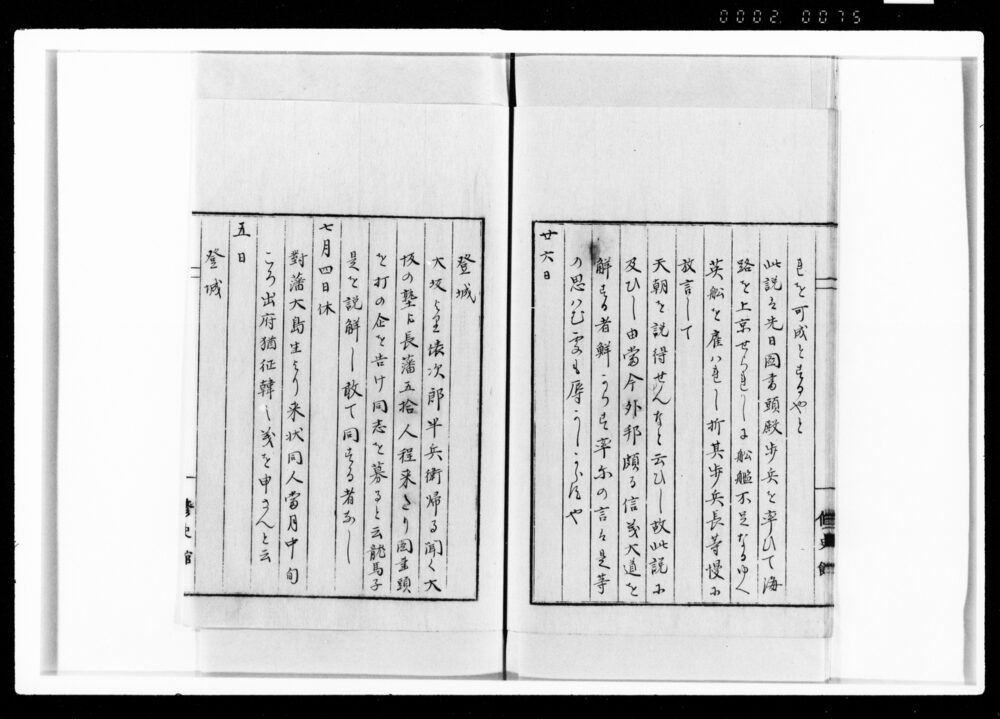 0002 0075
れを可成とするやと
此説を先日図書頭殿歩兵を率ひて海
路を上京せられしに船艦不足なるゆへ
英船を雇ハれし折其歩兵長等慢に
放言して
天朝を説得せんなと云ひし故此説に
及ひし由當今外邦頗る信義大道を
解する者鮮からす率尓の言ハ是等
の思ハむ
廿六日
修史館
登城
大坂より倭次郎半兵衛帰る聞く大
坂の塾に長藩五拾人程来たり図書頭
を打の企を告け同志を募ると云龍馬子
是を説解し敢て同する者なし
七月四日休
對藩大島生より来状同人當月中旬
ころ出府猶征韓之義を申さんと云
五日
登城
修史館